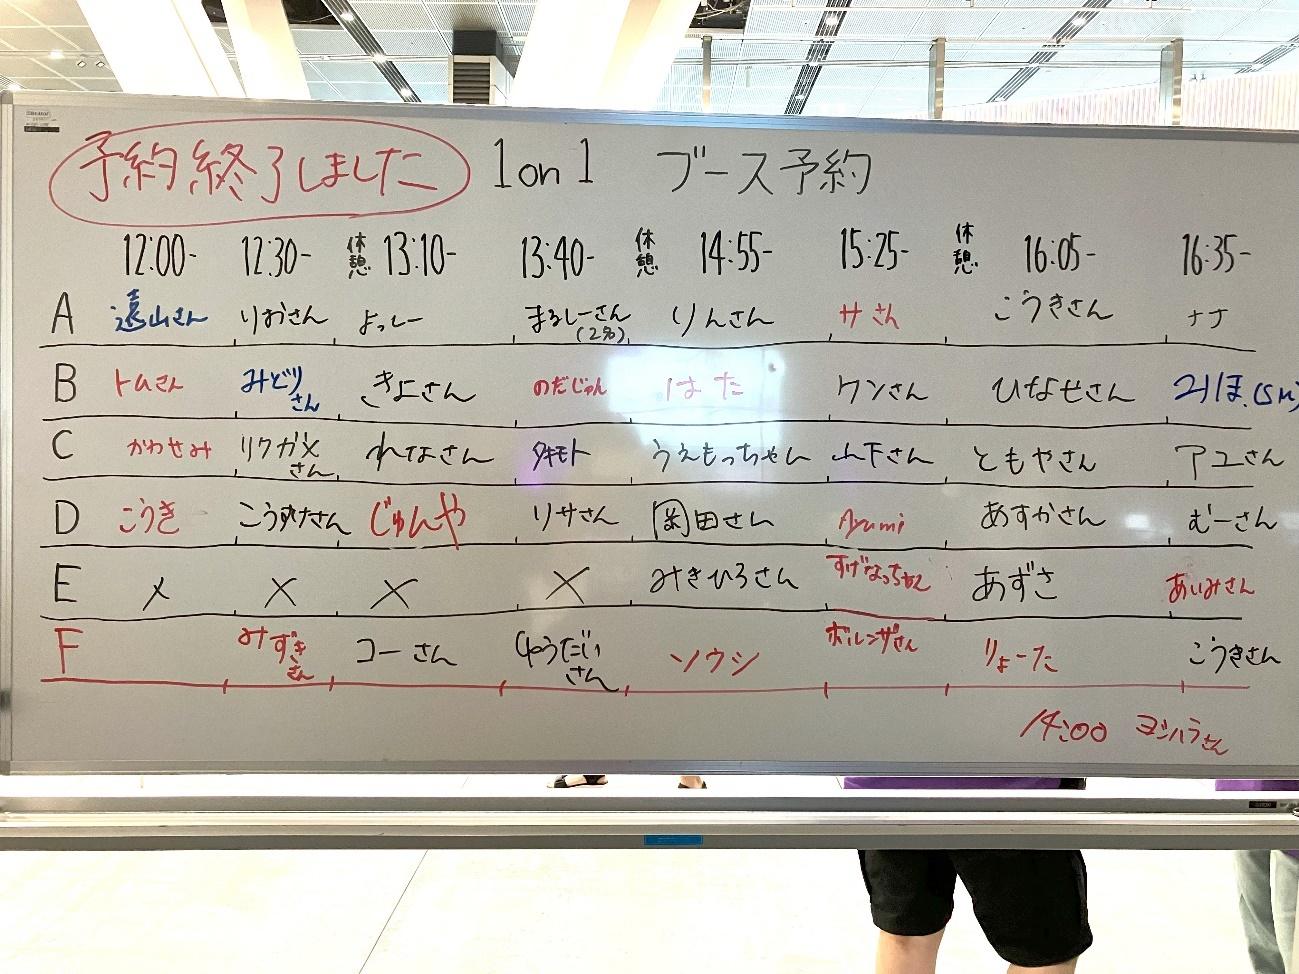 予約終了しました 1on1 ブース予約
12:00- 12:30- 休憩 13:10- 13:40- 休憩 14:55- 15:25- 休憩 16:05- 16:35-
A 遠山さん りおさん よっしー まるしーさん りんさん サさん こうきさん ナナ
B トムさん みどりさん きよさん のだじゅん はた ケンさん ひなせさん みほ
C かわせみ リクガメさん れなさん タキモト うえもっちゃん 山下さん ともやさん アユさん
D こうき こうすけさん じゅんや リサさん 岡田さん Ayumi あすかさん むーさん
E × × × × みきひろさん すげなっちゃん あずさ あいみさん
F みずきさん コーさん ゆうだいさん ソウシ ボルンガさん りょーた こうきさん
14:00 ヨシハラさん